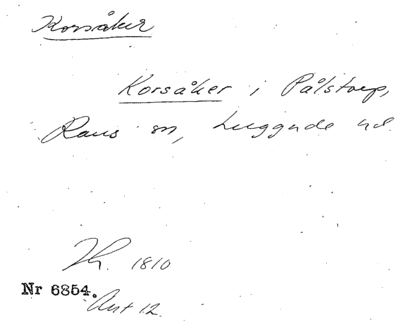 Korsåker
Korsåker i Pålstorp,
Raus sn, Luggude hd.
Th. 1810
Nr 6854.
Ant 12.